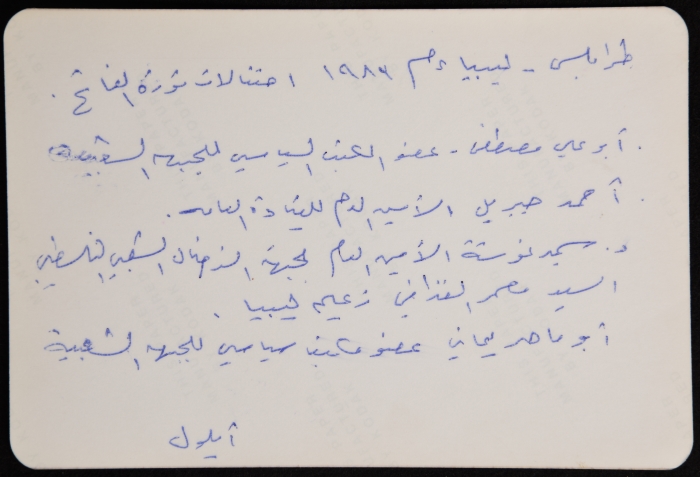 طرابلس - ليبيا عام ١٩٨٦ احتفالات ثورة الفاتح .
. أبو علي مصطفى - عضو المكتب السياسي للجبهة الشعبية
. أحمد جبريل الأمين العام للقيادة العامة .
د. سمير غوشة الأمين العام لجبهة النضال الشعبي الفلسطيني
السيد معمر القذافي زعيم ليبيا .
أبو ماهر يماني عضو مكتب سياسي للجبهة الشعبية
أيلول